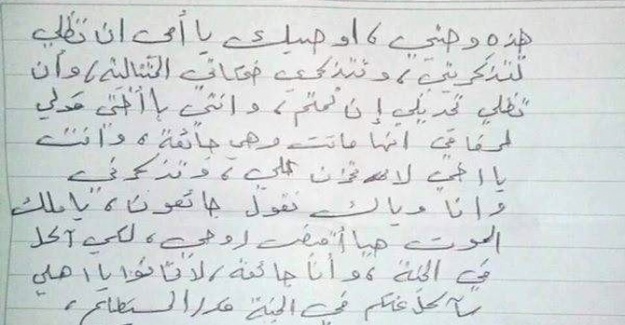 هذه وصيتي، اوصيك يا أمي ان تظلي
تتذكريني، وتتذكري ضحكاتي المتتالية، وأن
تظلي تحبيني إن متم، وانتي يا أختي قولي
لرفاقي انها ماتت وهي جائعة، وانت
يا اخي لا تحزن علي، وتذكر في
وانا وياك نقول جائعون، يا ملك
الموت هيا أقبض روحي، لكي آكل
في الجنة، وأنا جائعة، لا تخافوا يا اهلي
سآكل عنكم في الجنة قدر المستطاع،